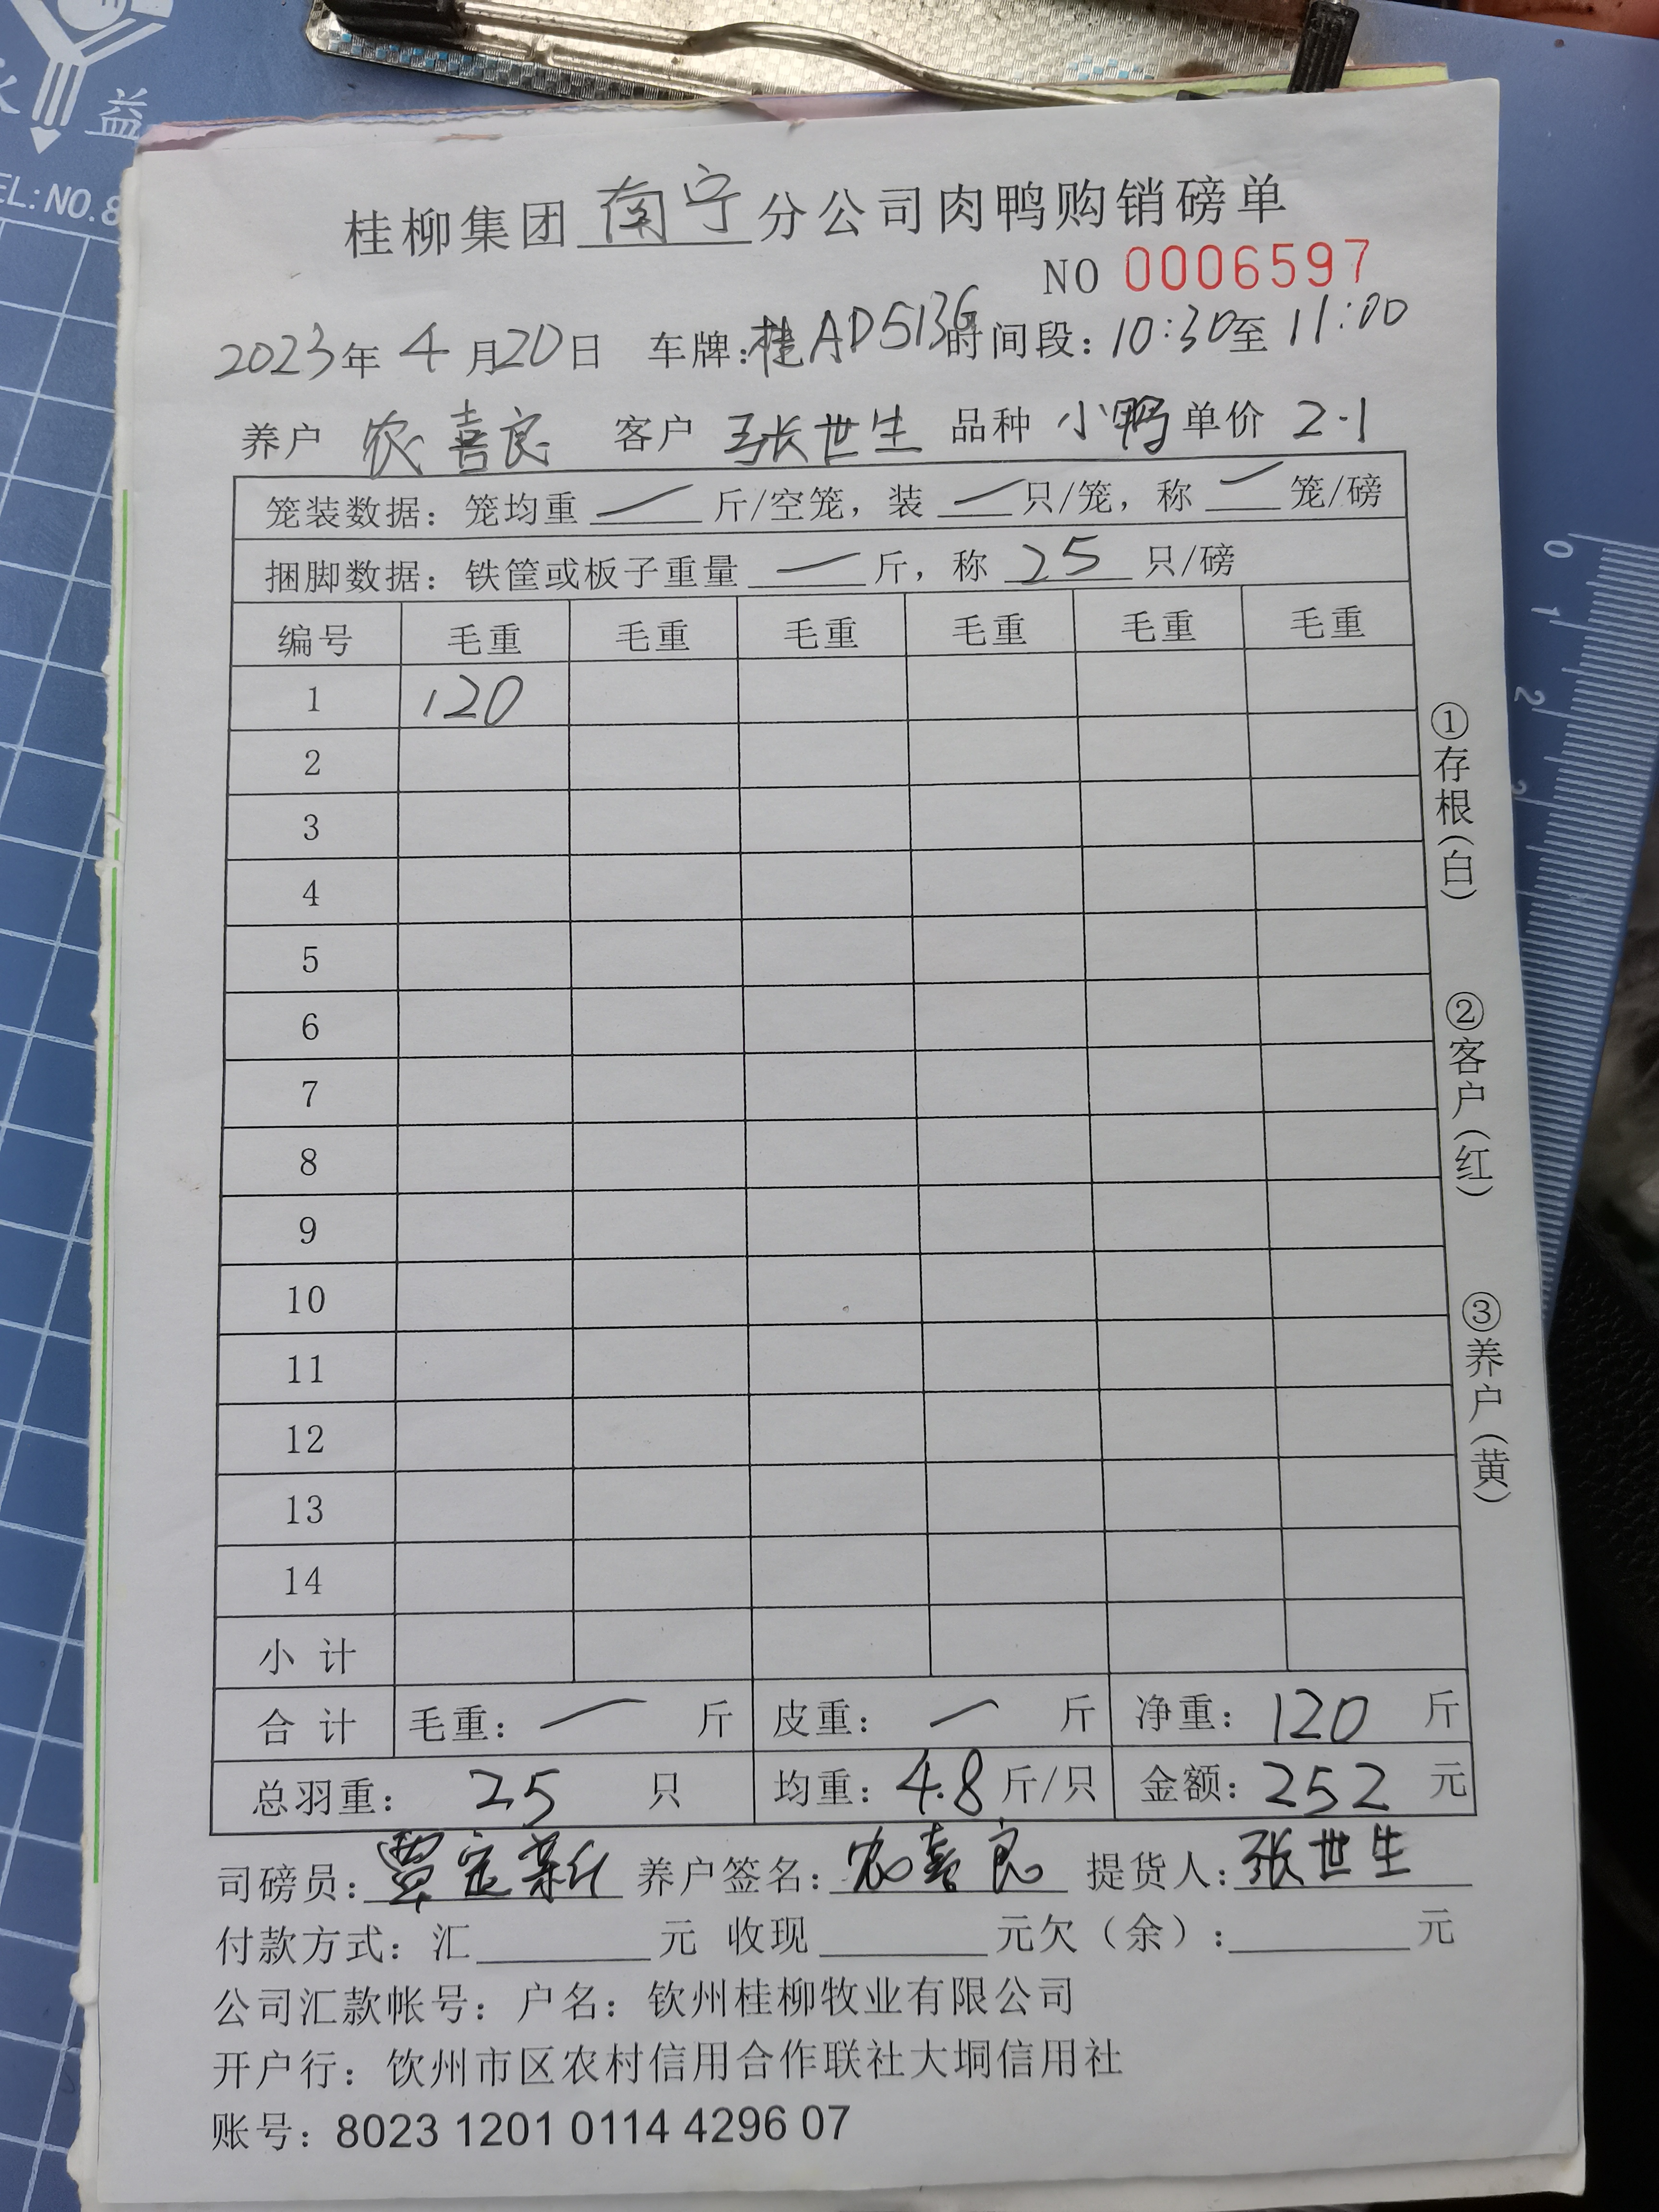 益
EL:NO.8
桂柳集团南宁分公司肉鸭购销磅单
NO 0006597
2023年4月20日 车牌:桂AD513G时间段:10:30至11:00
养户 农喜良 客户 张世生 品种 小鸭 单价 2.1
笼装数据:笼均重 一 斤/空笼,装 一 只/笼,称 一 笼/磅
捆脚数据:铁筐或板子重量 一 斤,称 25 只/磅
编号 毛重 毛重 毛重 毛重 毛重 毛重
1 120
2
3
4
5
6
7
8
9
10
11
12
13
14
小 计
合 计 毛重: 一 斤 皮重: 一 斤 净重: 120 斤
总羽重: 25 只 均重: 4.8 斤/只 金额: 252 元
司磅员:覃定 养户签名:农喜良 提货人:张世生
付款方式:汇 元 收现 元欠(余): 元
公司汇款帐号:户名:钦州桂柳牧业有限公司
开户行:饮州市区农村信用合作联社大垌信用社
账号:8023 1201 0114 4296 07
①存根(白)
②客户(红)
③养户(黄)
0
1
2